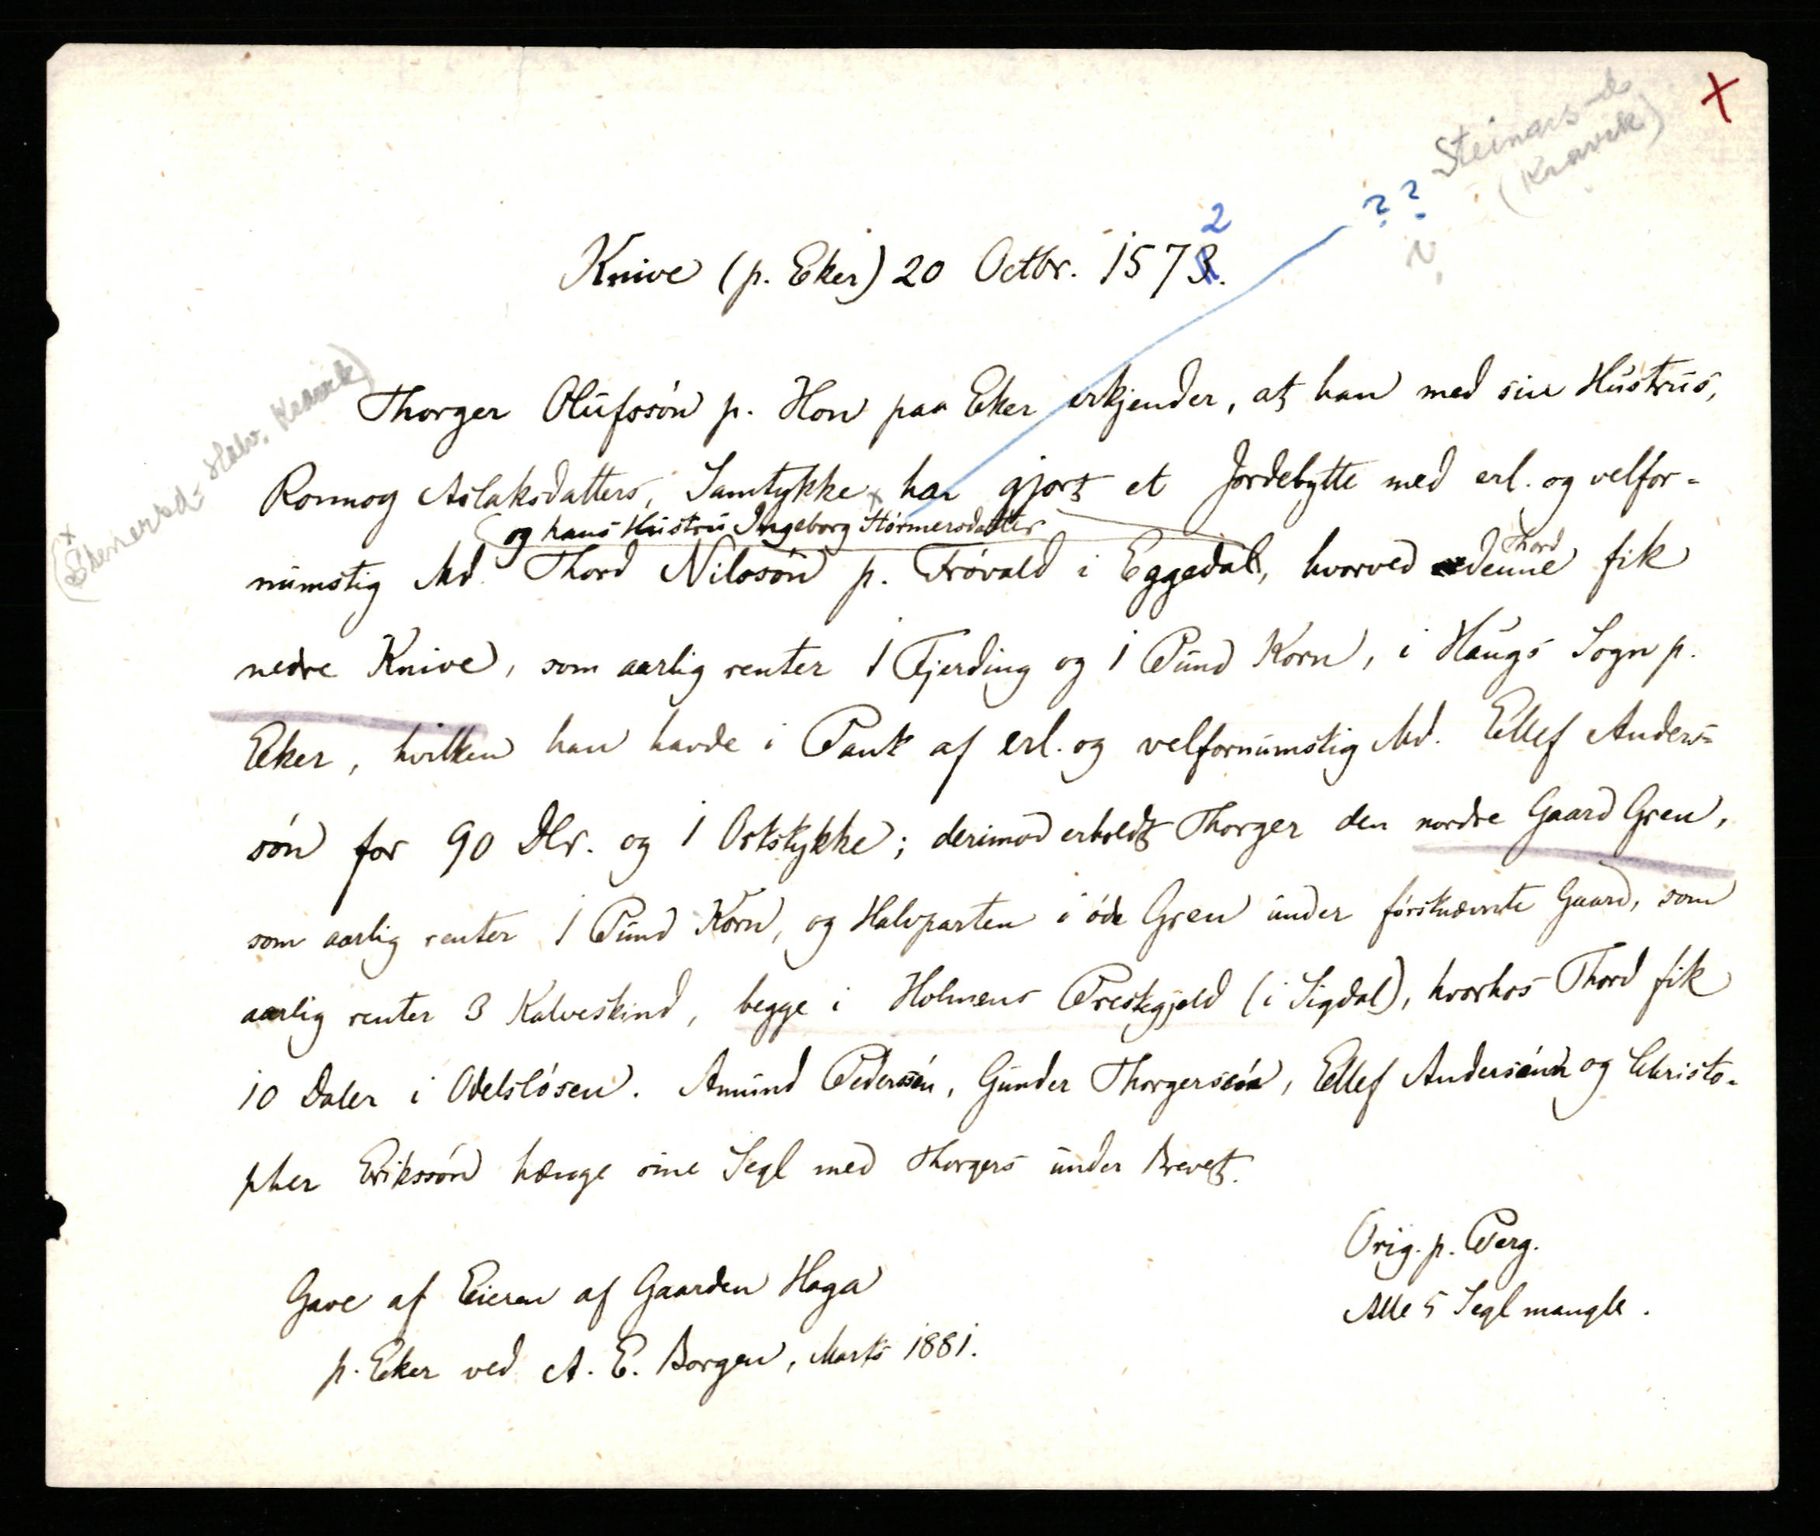 Steinars-d.
(Kravik)
?
? ?
2
Knive (p. Eker) 20 Octbr. 1573.
(Stenersd= Halv. Kravik)
Thorger Olufssön p. Hon paa Eker erkjender, at han med sin Hustrus,
Ronnog Aslaksdatters, Samtykke, har gjort et Jordebytte med erl. og velfor-
og hans Hustru Ingeborg Störmersdatter
numstig Md. Thord Nilssön p. Frövald i Eggedal, hvorved denne fik
Thord
nedre Knive, som aarlig renter 1 Fjerding og 1 Pund Korn, i Haugs Sogn p.
Eker, hvilken han havde i Pant af erl. og velfornumstig Md. Ellef Anders-
sön for 90 Dlr. og 1 Ortstykke; derimod erholdt Thorger den nordre Gaard Gren,
som aarlig renter 1 Pund Korn, og Halvparten i öde Gren under förstnævnte Gaard, som
aarlig renter 3 Kalveskind, begge i Holmens Prestegjeld (i Sigdal), hvorhos Thord fik
10 Daler i Odelslösen. Amund Pederssön, Gunder Thorgerssön, Ellef Anderssön og Christo-
pher Erikssön hænge sine Segl med Thorgers under Brevet.
Orig. p. Perg.
Alle 5 Segl mangle.
Gave af Eieren af Gaarden Haga
p. Eker ved A. E. Borgen, Marts 1881.